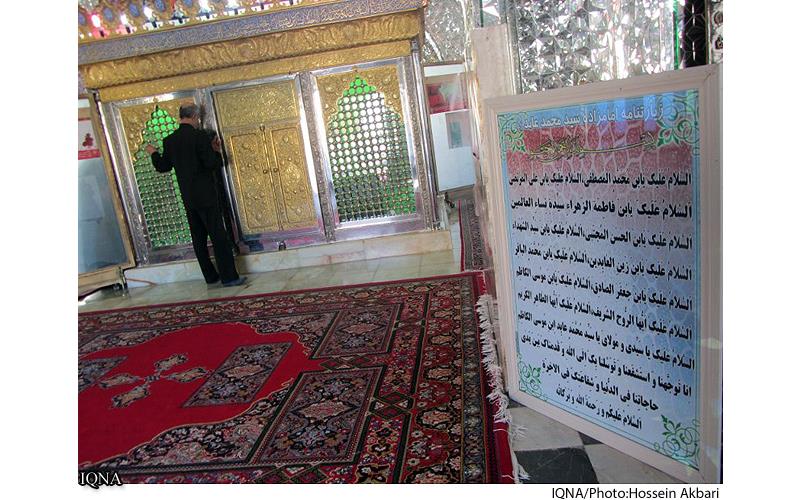 زیارتنامه امامزاده سید محمد عابد
السّلام علیک یابن محمد المصطفی،السّلام علیک یابن علی المرتضی
السّلام علیک یابن فاطمه الزهراء سیدة نساء العالمین
السّلام علیک یابن الحسن المجتبی،السّلام علیک یابن سیّد الشهداء
السّلام علیک یابن زین العابدین،السّلام علیک یابن محمد الباقر
السّلام علیک یابن جعفر الصادق،السّلام علیک یابن موسی الکاظم
السّلام علیک ایها الرّوح الشریف،السّلام علیک ایها الطاهر الکریم
السّلام علیک یا سیّدی و مولای یا سید محمد عابد ابن موسی الکاظم
انا توجهنا و استشفعنا و توسلنا بک الی الله و قدمناک بین یدی
حاجاتنا فی الدّنیا و شفاعتک فی الاخرة
السّلام علیکم و رحمة الله و برکاته
IQNA
IQNA/Photo:Hossein Akbari